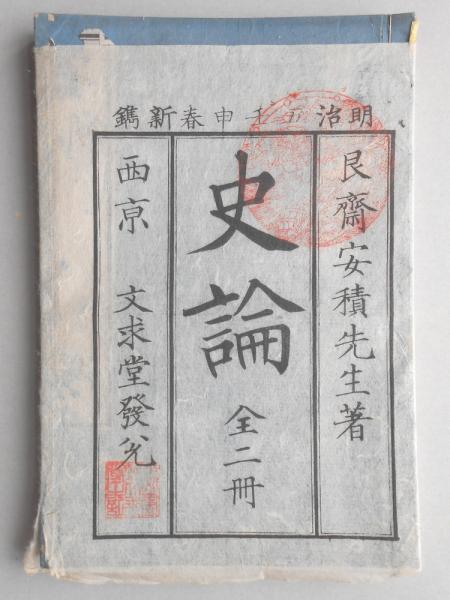 明治五壬申春新鐫
艮齋安積先生著
史論
全二冊
西京 文求堂發兌